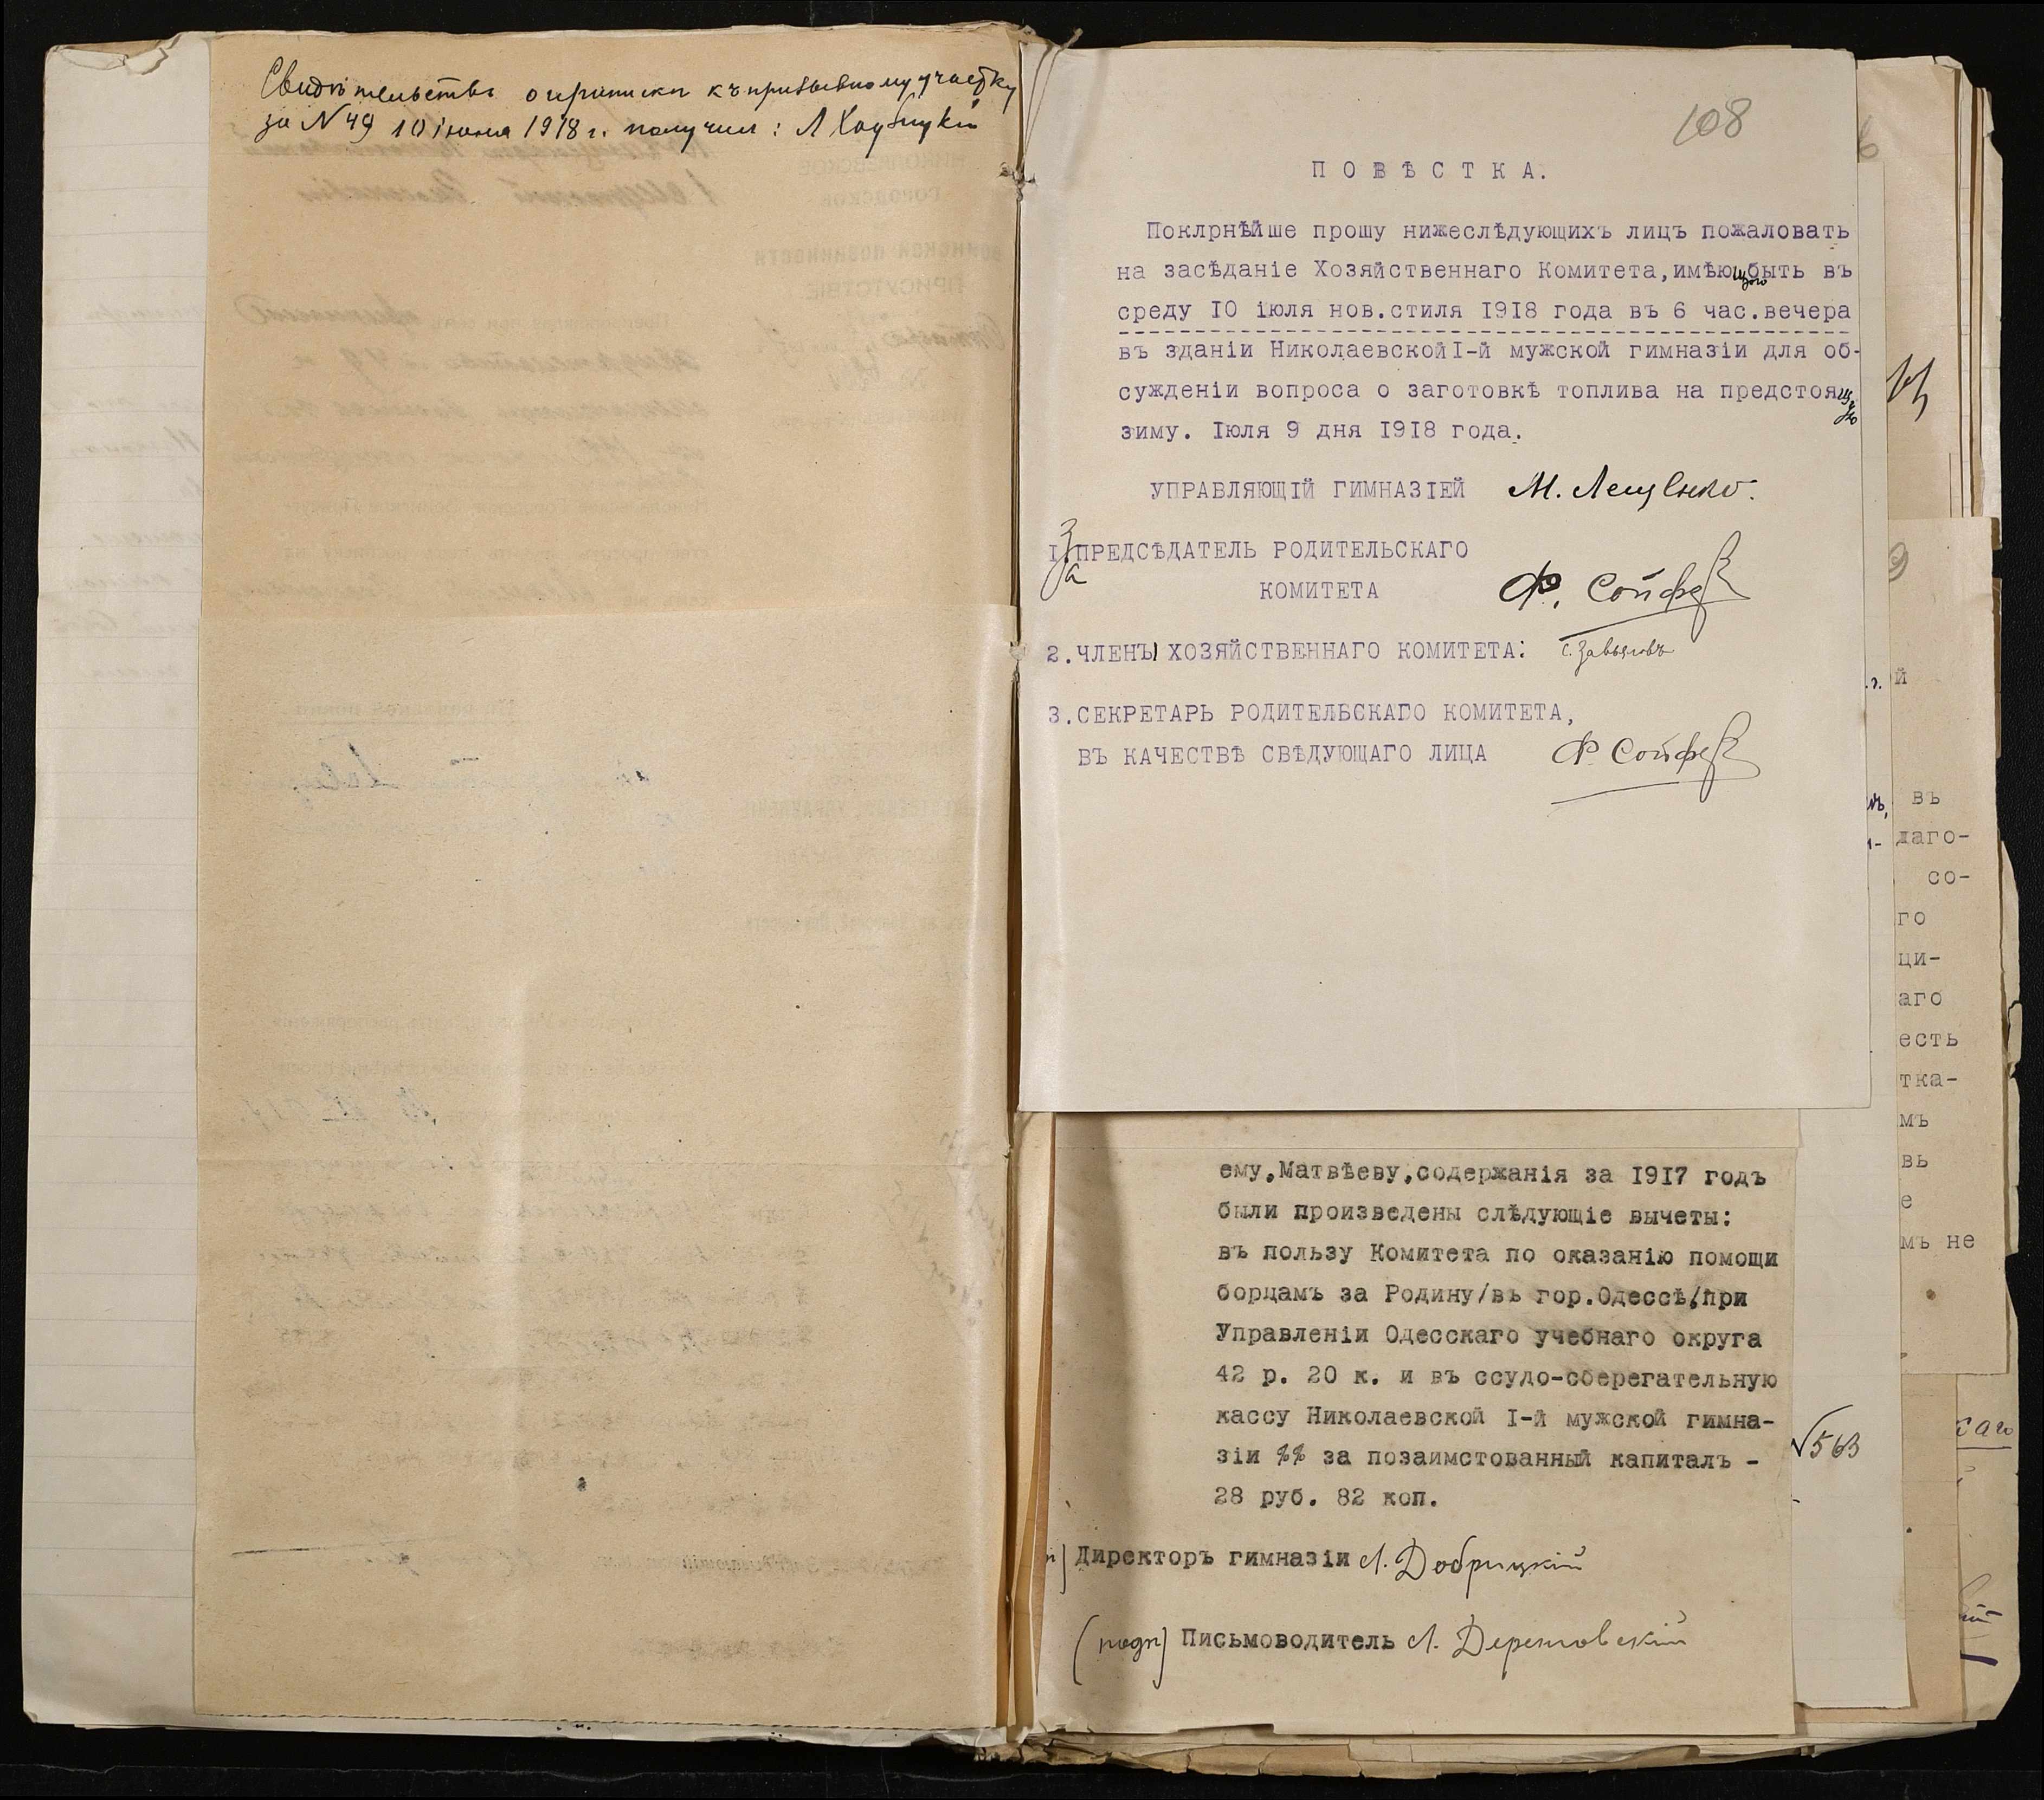 Свидѣтельство о приписки къ призывному участку
за N 49 10 іюня 1918 г. получил: Л
108
ПОВѢСТКА.
Поклрнѣйше прошу нижеслѣдующихъ лицъ пожаловать
на засѣданіе Хозяйственнаго Комитета,имѣющаго быть въ
среду 10 іюля нов.стиля 1918 года въ 6 час.вечера
въ зданіи Николаевской I-й мужской гимназіи для об-
сужденіи вопроса о заготовкѣ топлива на предстоящую
зиму. Іюля 9 дня 1918 года.
УПРАВЛЯЮЩІЙ ГИМНАЗІЕЙ М. Лещенко.
За
I.ПРЕДСѢДАТЕЛЬ РОДИТЕЛЬСКАГО
КОМИТЕТА Ф. Сойфер
2.ЧЛЕНЫ ХОЗЯЙСТВЕННАГО КОМИТЕТА: С. Завьяловъ
3.СЕКРЕТАРЬ РОДИТЕЛЬСКАГО КОМИТЕТА,
ВЪ КАЧЕСТВѢ СВѢДУЮЩАГО ЛИЦА Ф. Сойфер
ему,Матвѣеву,содержанія за 1917 годъ
были произведены слѣдующіе вычеты:
въ пользу Комитета по оказанію помощи
борцамъ за Родину/въ гор.Одессѣ/при
Управленіи Одесскаго учебнаго округа
42 р. 20 к. и въ ссудо-сберегательную
кассу Николаевской I-й мужской гимна-
зіи %% за позаимстованный капиталъ -
28 руб. 82 коп.
Директоръ гимназіи Л. Добрицкій
(подп) Письмоводитель Л.
й
въ
даго-
со-
го
ци-
аго
есть
тка-
мъ
вь
е
мъ не
N 563